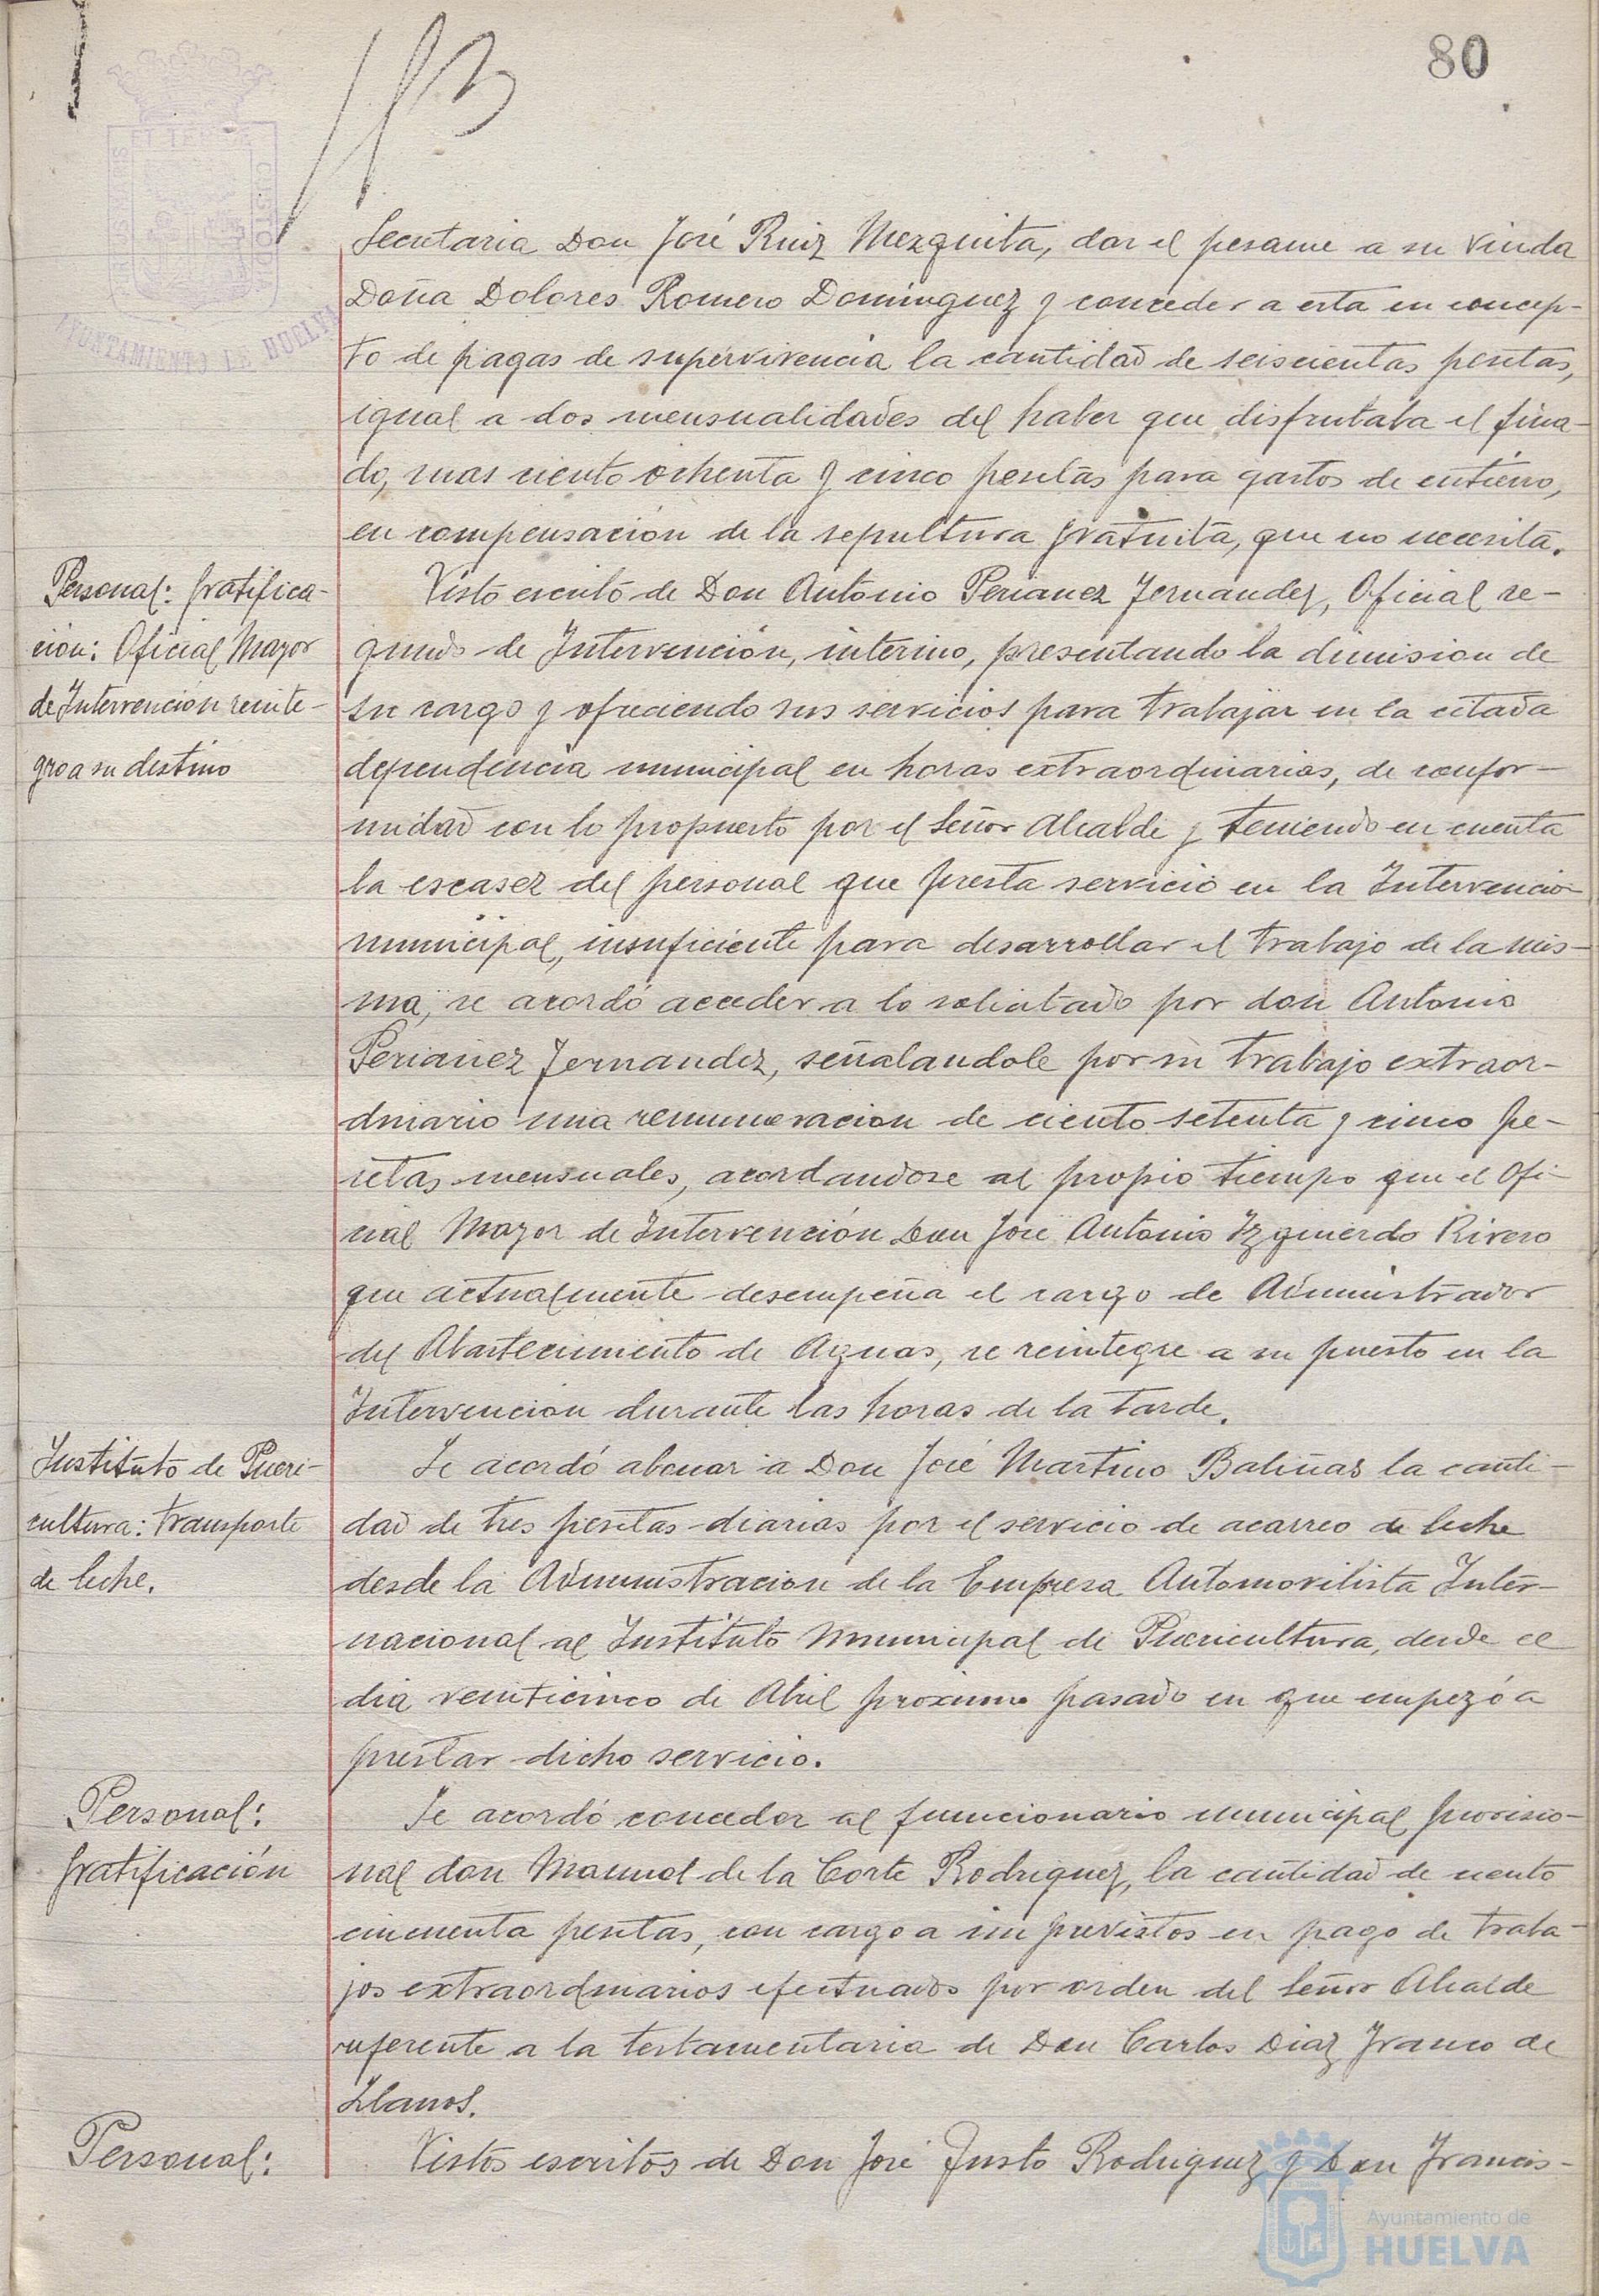 80
113
PORTUS MARIS ET TERRE CUSTODIA
AYUNTAMIENTO DE HUELVA
Secretaria Don José Ruiz Mezquita, dar el pesame a su viuda
Doña Dolores Romero Dominguez y conceder a esta en concep-
to de pagas de supervivencia la cantidad de seiscientas pesetas,
igual a dos mensualidades del haber que disfrutaba el fina-
do, mas ciento ochenta y cinco pesetas para gastos de entierro,
en compensación de la sepultura gratuita, que no necesita.
Personal: Gratifica-
ción: Oficial Mayor
de Intervencion reinte-
gro a su destino
Visto escrito de Don Antonio Periañez Fernandez, Oficial se-
gundo de Intervención, interino, presentando la dimision de
su cargo y ofreciendo sus servicios para trabajar en la citada
dependencia municipal en horas extraordinarias, de confor-
midad con lo propuesto por el Señor Alcalde y teniendo en cuenta
la escasez del personal que presta servicio en la Intervencion
municipal, insuficiente para desarrollar el trabajo de la mis-
ma, se acordó acceder a lo solicitado por don Antonio
Periañez Fernandez, señalandole por su trabajo extraor-
dinario una remuneracion de ciento setenta y cinco pe-
setas mensuales, acordandose al propio tiempo que el Ofi-
cial Mayor de Intervención Don José Antonio Izquierdo Rivero
que actualmente desempeña el cargo de Administrador
del Abastecimiento de Aguas, se reintegre a su puesto en la
Intervencion durante las horas de la tarde.
Instituto de Pueri-
cultura: transporte
de leche.
Se acordó abonar a Don José Martino Baliñas la canti-
dad de tres pesetas diarias por el servicio de acarreo de leche
desde la Administracion de la Empresa Automovilista Inter-
nacional al Instituto Municipal de Puericultura, desde el
dia veinticinco de Abril proximo pasado en que empezó a
prestar dicho servicio.
Personal:
Gratificación
Se acordó conceder al funcionario municipal provisio-
nal don Manuel de la Corte Rodriguez, la cantidad de ciento
cincuenta pesetas, con cargo a imprevistos en pago de traba-
jos extraordinarios efectuados por orden del Señor Alcalde
referente a la testamentaria de Don Carlos Diaz Franco de
Llanos.
Personal:
Vistos escritos de Don José Justo Rodriguez y Don Francis-
Ayuntamiento de
HUELVA